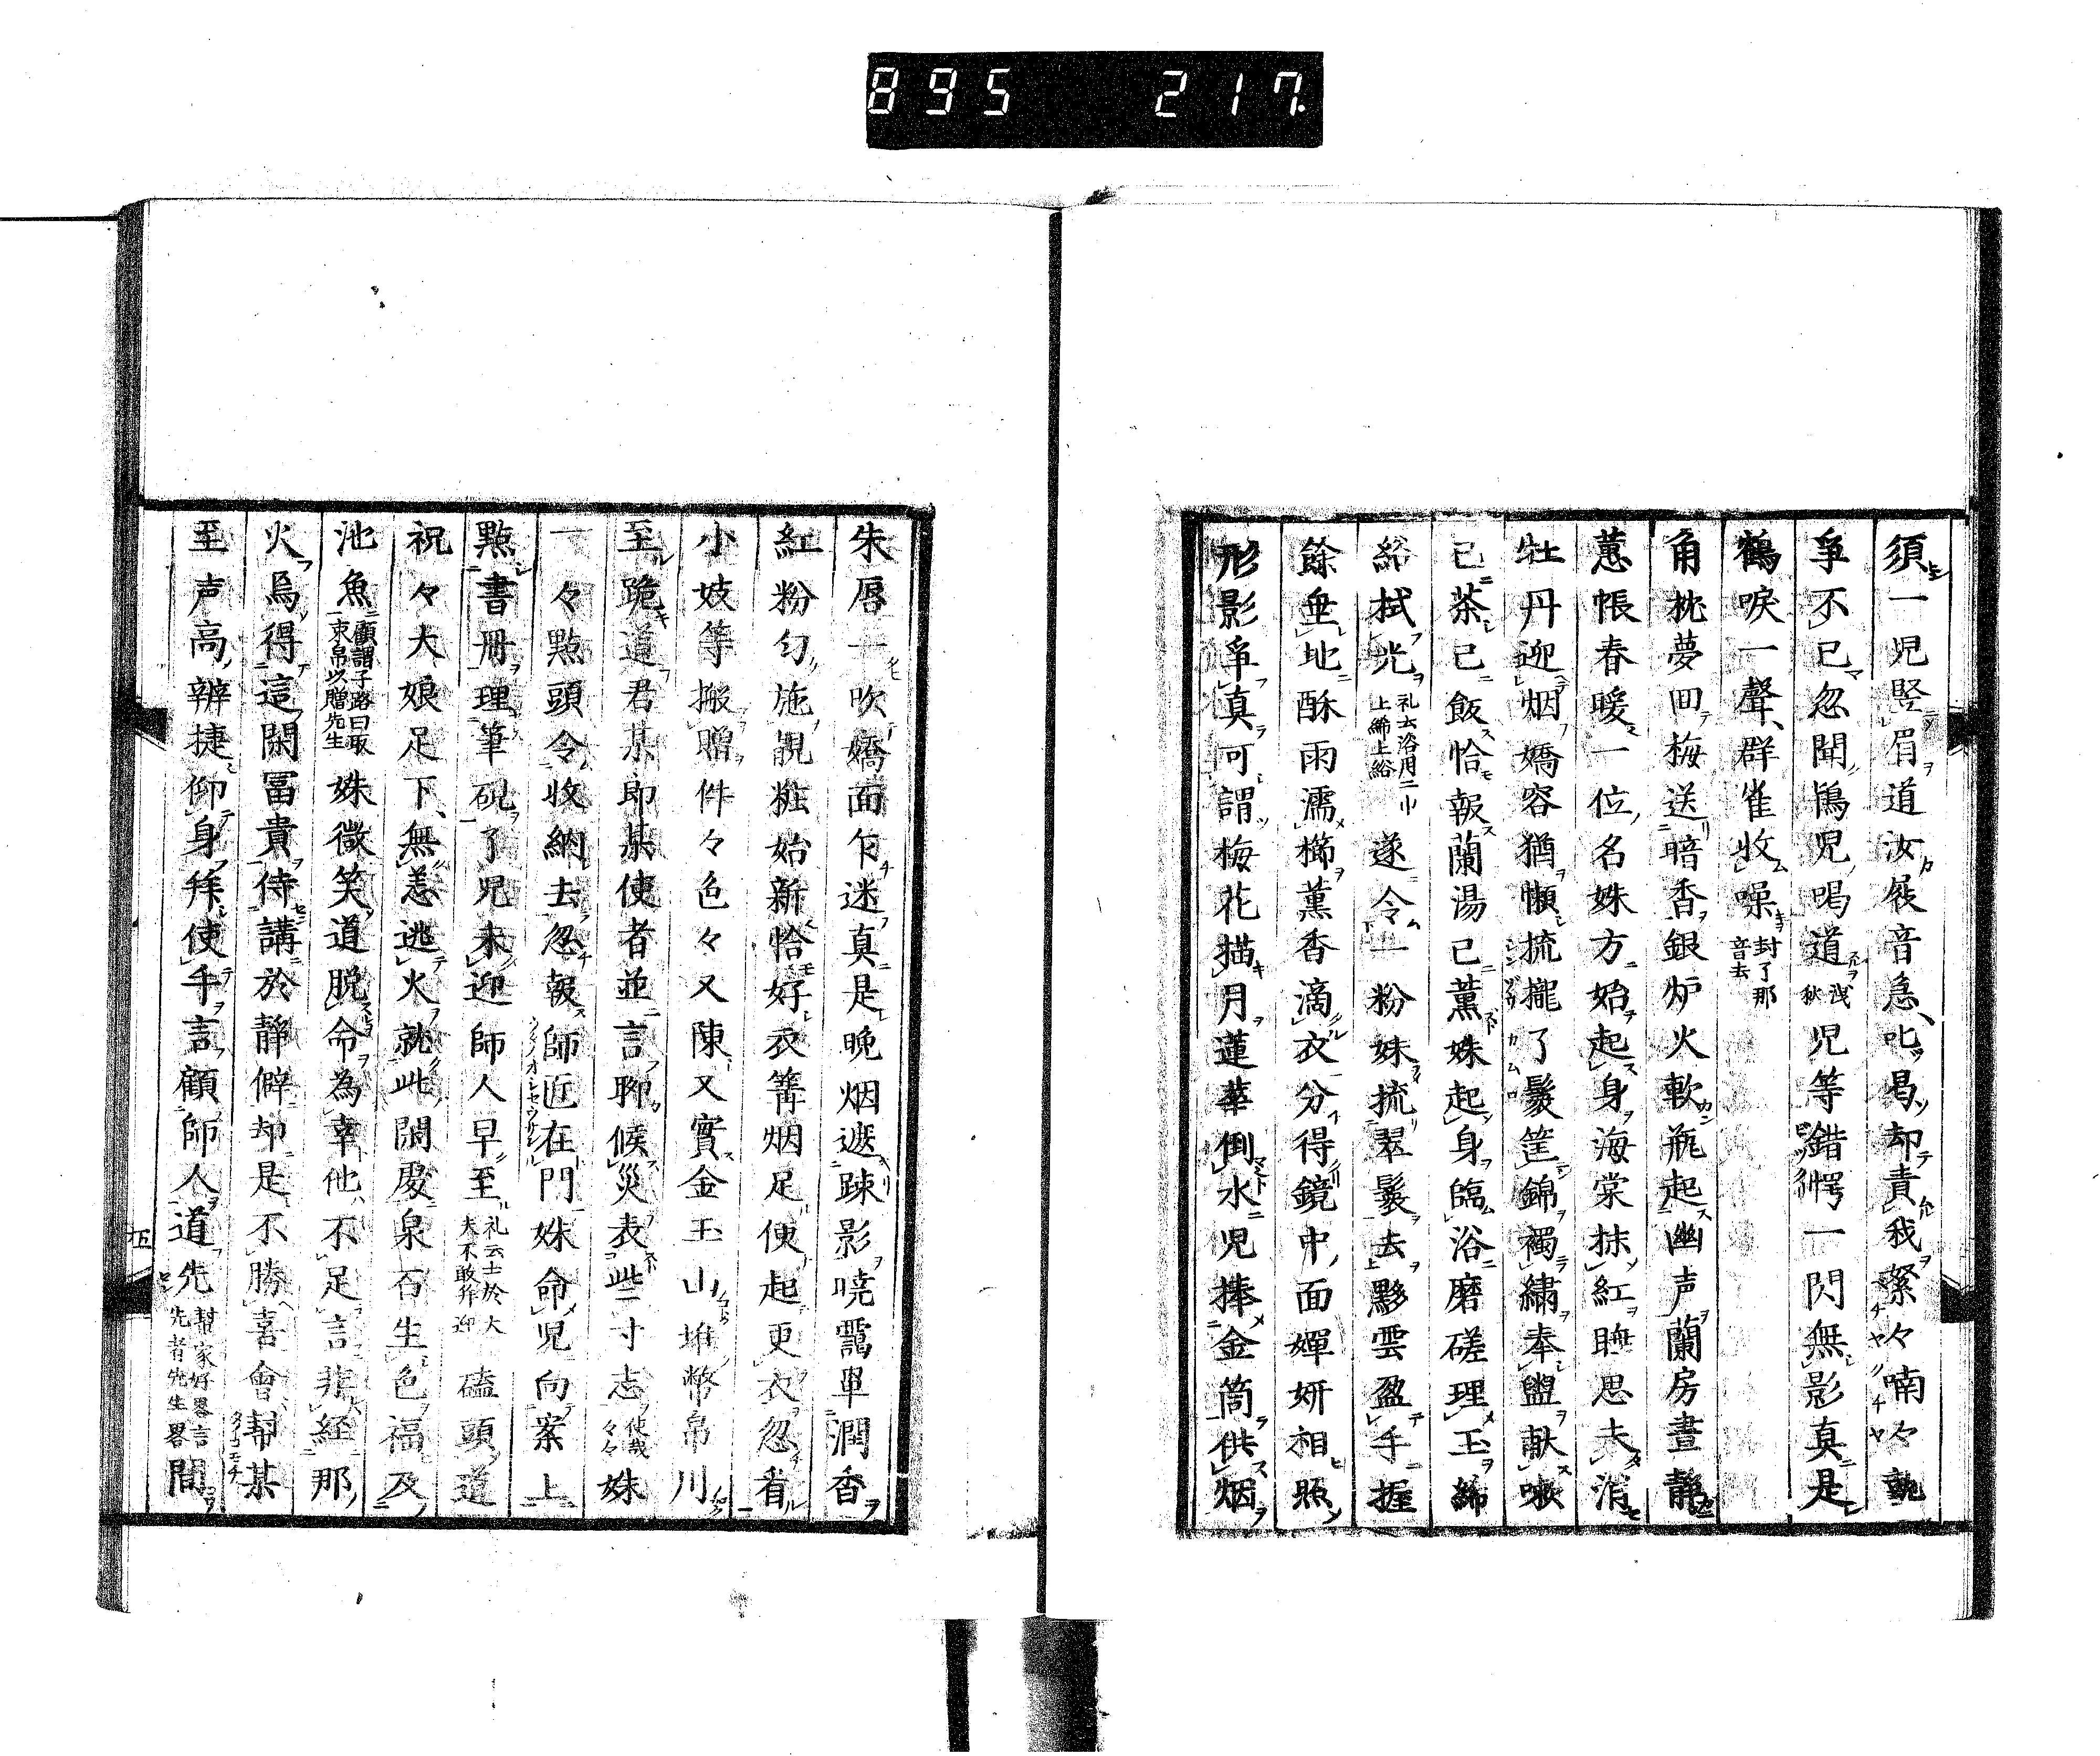 895 217
須一児竪眉道汝屐音急、叱曷却責我緊々喃々執
爭不已忽聞鴇児喝道洩秋児等錯愕一閃無影真是
鶴唳一聲、群雀收噪封了那音去
角枕夢回梅送暗香銀炉火軟瓶起幽声蘭房晝静
蕙帳春暖一位名姝方始起身海棠抹紅睡思未消
牡丹迎烟嬌容猶懶梳攏了鬟筐錦襡繡奉盥献嗽
已茶已飯恰報蘭湯已薫姝起身臨浴磨磋理玉絺
綌拭光礼云浴用二巾上絺上綌遂令一粉妹梳翠鬟去夥雲盈手握
餘垂地酥雨濡櫛薫香滴衣分得鏡中面嬋妍相照
形影爭真可謂梅花描月蓮華倒水児捧金筒供烟
朱唇一吹嬌面乍迷真是晩烟遮踈影暁靄単潤香
紅粉匀施靚粧始新恰好衣篝烟足便起更衣忽看
小妓等搬贈件々色々又陳又實金玉山堆幣帛川
至跪道君某郎某使者並言聊候災表些寸志使哉々々姝
一々點頭令收納去忽報師匠在門姝命児向案上
點書冊理筆硯了児未迎師人早至礼云士於大夫不敢拜迎磕頭道
祝々大娘足下、無恙逃火就此閙處泉石生色福及
池魚顧謂子路曰取束帛以贈先生姝微笑道脱命為幸他不足言非経那
火焉得這閑冨貴侍講於靜僻却是不勝喜會幇某
至声高辨捷仰身拜使手言顧師人道先幇家好畧言先者先生畧間
五